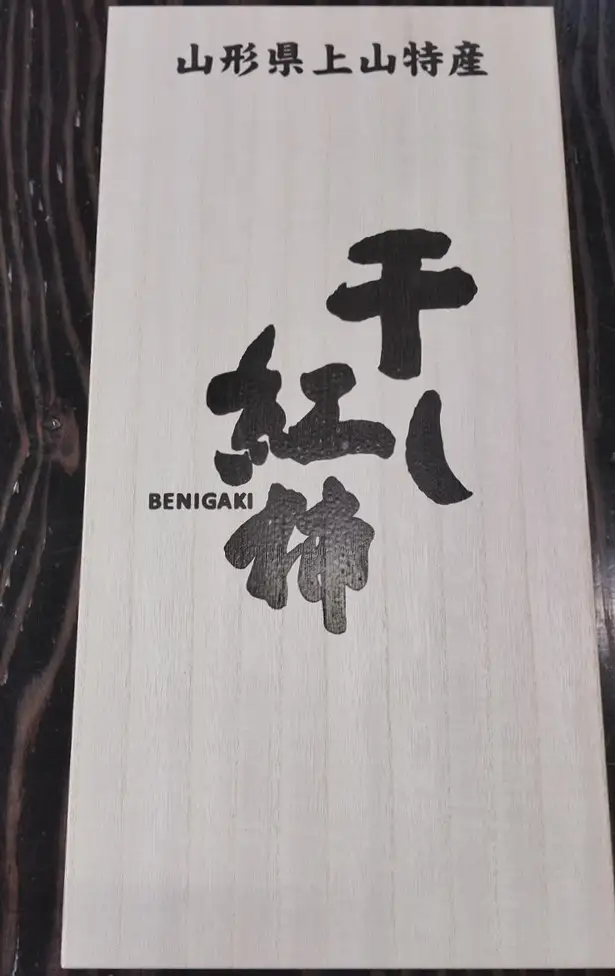 山形県上山特産
干し
紅柿
BENIGAKI